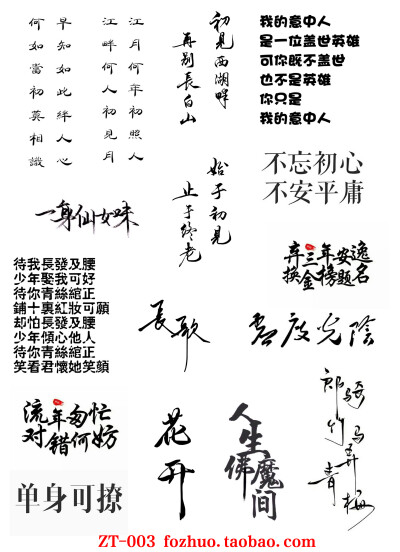 江月何年初照人
江畔何人初見月
早知如此絆人心
何如當初莫相識
初見西湖畔
再別長白山
我的意中人
是一位盖世英雄
可你既不盖世
也不是英雄
你只是
我的意中人
不忘初心
不安平庸
始于初見
止于終老
一身仙女味
弃三年安逸
换金榜题名
待我長發及腰
少年娶我可好
待你青絲綰正
鋪十裏紅妝可願
却怕長發及腰
少年傾心他人
待你青絲綰正
笑看君懷她笑顏
長歌
虛度光陰
流年匆忙
对错何妨
花开
人生佛魔間
郎骑竹马弄青梅
单身可撩
ZT-003 fozhuo.taobao.com